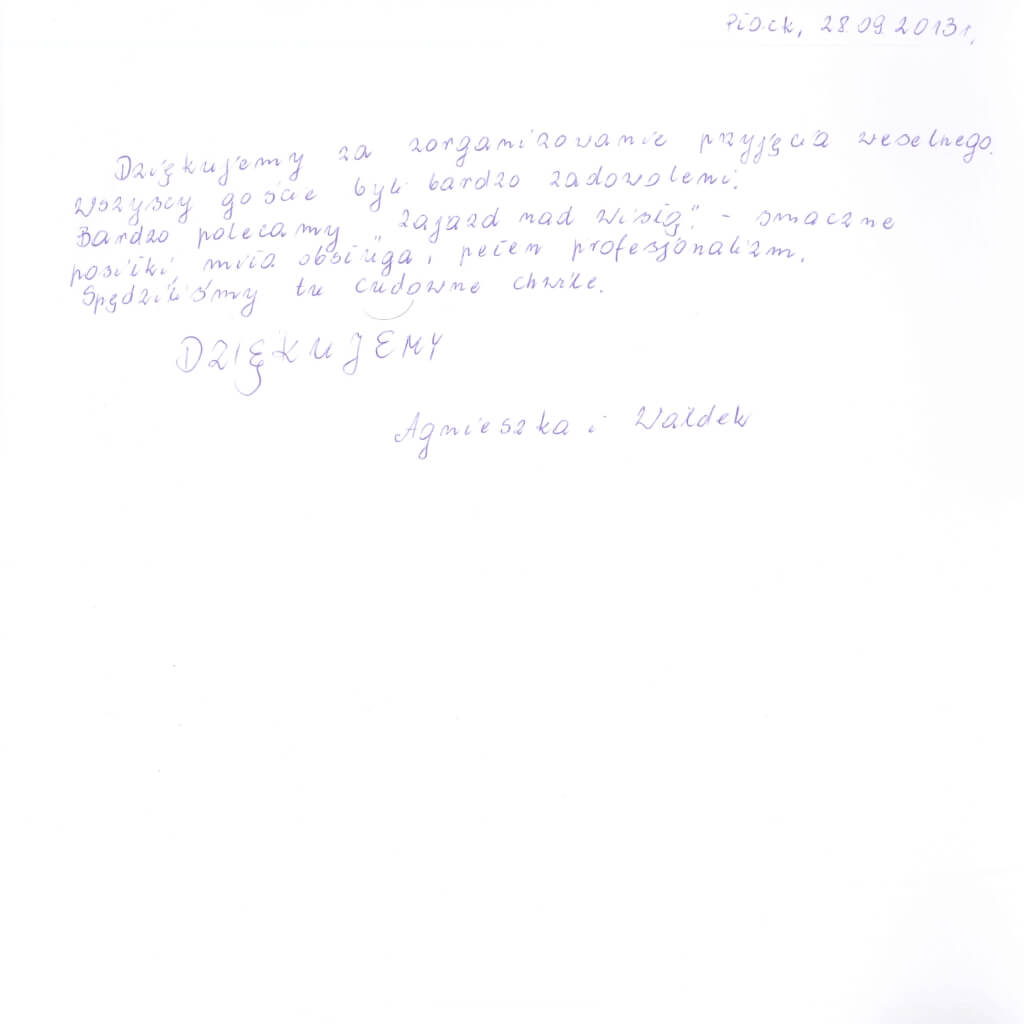 Płock, 28.09.2013r.
Dziękujemy za zorganizowanie przyjęcia weselnego.
Wszyscy goście byli bardzo zadowoleni.
Bardzo polecamy „zajazd nad wisłą" - smaczne
posiłki, miła obsługa, pełen profesjonalizm.
Spędziliśmy tu cudowne chwile.
DZIĘKUJEMY
Agnieszka i Waldek